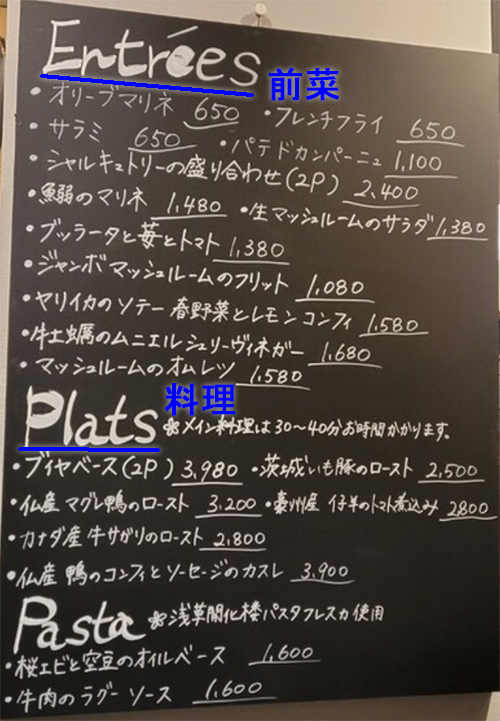 Entrées 前菜
・オリーブマリネ 650 ・フレンチフライ 650
・サラミ 650 ・パテドカンパーニュ 1,100
・シャルキュトリーの盛り合わせ(2P) 2,400
・魚弱のマリネ 1,480 ・生マッシュルームのサラダ 1,380
・ブッラータと苺とトマト 1,380
・ジャンボマッシュルームのフリット 1,080
・ヤリイカのソテー 春野菜とレモンコンフィ 1,580
・牡蠣のムニエルシェリーヴィネガー 1,680
・マッシュルームのオムレツ 1,580
Plats 料理 ❀メイン料理は30〜40分お時間かかります。
・ブイヤベース(2P) 3,980 ・茨城いも豚のロースト 2,500
・仏産 マグレ鴨のロースト 3,200 ・豪州産 仔羊のトマト煮込み 2800
・カナダ産 牛サガリのロースト 2,800
・仏産 鴨のコンフィとソーセージのカスレ 3,900
Pasta ❀浅草開化楼パスタフレスカ使用
・桜エビと空豆のオイルベース 1,600
・牛肉のラグーソース 1,600